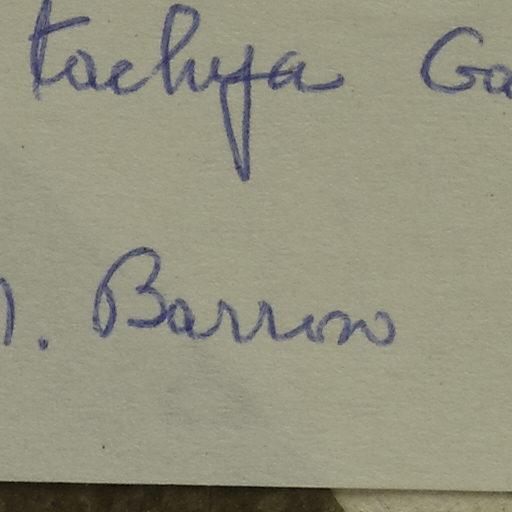 tachya Ga
. Barroso